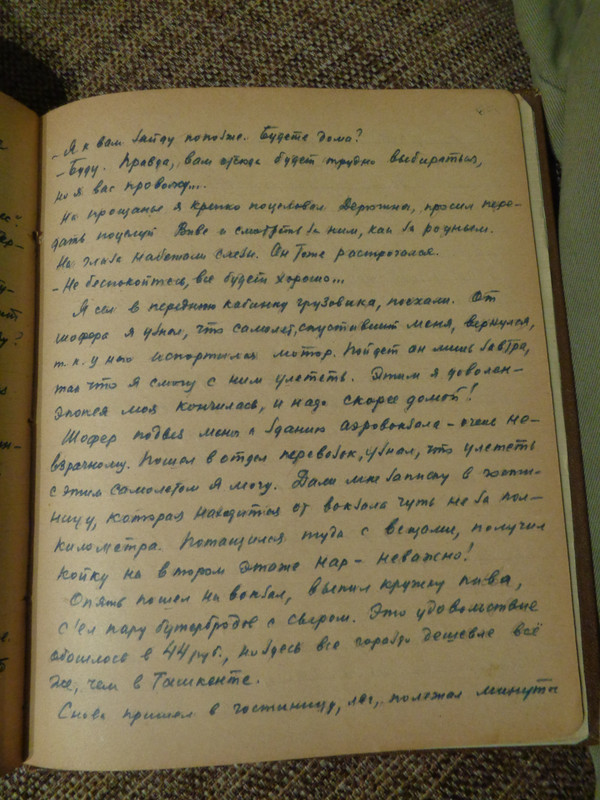 - Я к вам зайду попозже. Будете дома?
- Буду. Правда, вам отсюда будет трудно выбираться,
но я вас провожу...
На прощанье я крепко поцеловал просил пере-
дать поцелуй Виве и смотреть за ним, как за родным.
На глаза набегали слезы. Он тоже растрогался.
- Не беспокойтесь, все будет хорошо...
Я сел в переднюю кабинку грузовика, поехали. От
шофера я узнал, что самолет, спустивший меня, вернулся,
т.к. у него испортился мотор. Пойдет он лишь завтра,
так что я смогу с ним улететь. Этим я доволен -
эпопея моя кончилась, и надо скорее домой!
Шофер подвез меня к зданию аэровокзала - очень не-
взрачному. Пошел в отдел перевозок, узнал, что улететь
с этим самолетом я могу. Дали мне записку в гости-
ницу, которая находится от вокзала чуть не за пол-
километра. Потащился туда с вещами, получил
койку на втором этаже нар - неважно!
Опять пошел на вокзал, выпил кружку пива,
с'ел пару бутербродов с сыром. Это удовольствие
обошлось в 44 руб., но здесь все гораздо дешевле всё
же, чем в Ташкенте.
Снова пришел в гостиницу, лег, полежал минуты